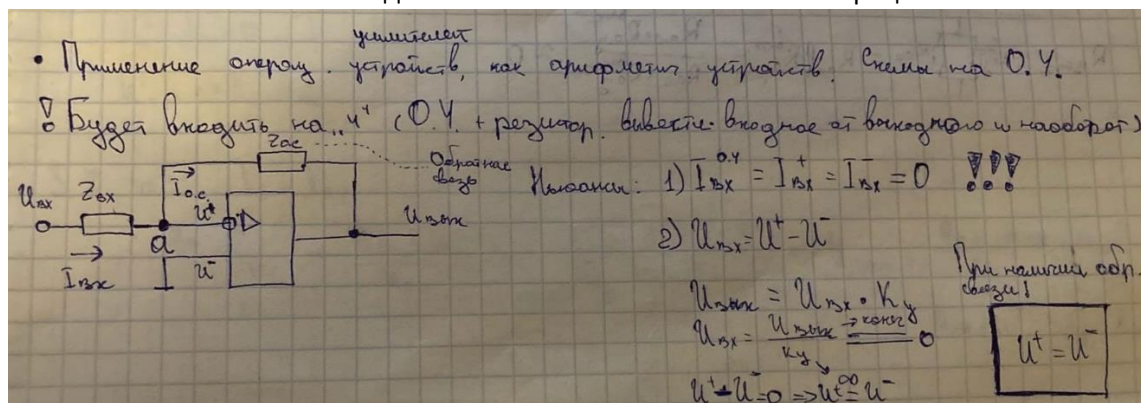 усилителей
• Применение операц. устройств, как арифметич устройств. Схемы на О.У.
! Будет входить на „4“ (О.У. + резистор. вывести входное от выходного и наоборот)
Zос
Обратная
связь
Iо.с.
Uвх
Zвх
a
U⁺
U⁻
Iвх
Uвых
Нюансы: 1) Iвх^о.у = Iвх⁺ = Iвх⁻ = 0 !!!
2) Uвх = U⁺ - U⁻
Uвых = Uвх • Kу
Uвх = Uвых → конеч / Kу ↘ ∞ = 0
U⁺ - U⁻ = 0 => U⁺ = U⁻
При наличии обр.
связи!
U⁺ = U⁻